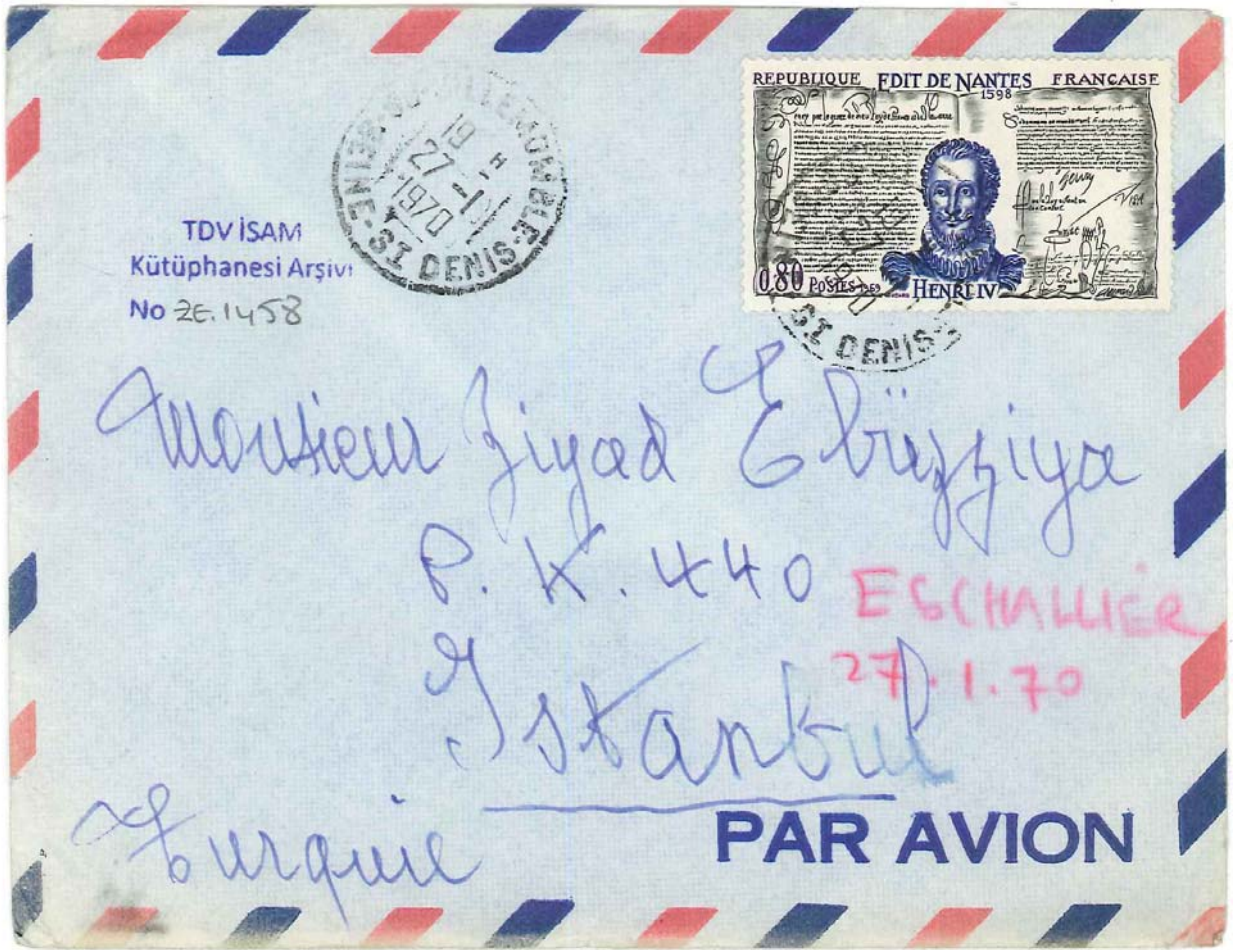 REPUBLIQUE EDIT DE NANTES FRANÇAISE
1598
0,80 POSTES 1969 HENRI IV
VILLEMOMBLE
SEINE-ST DENIS
19 H
27-1
1970
ST DENIS
TDV İSAM
Kütüphanesi Arşivi
No ZE.1458
Monsieur Ziyad Ebüzziya
P.K. 440
ESCHALLIER
27.1.70
Istanbul
Turquie
PAR AVION